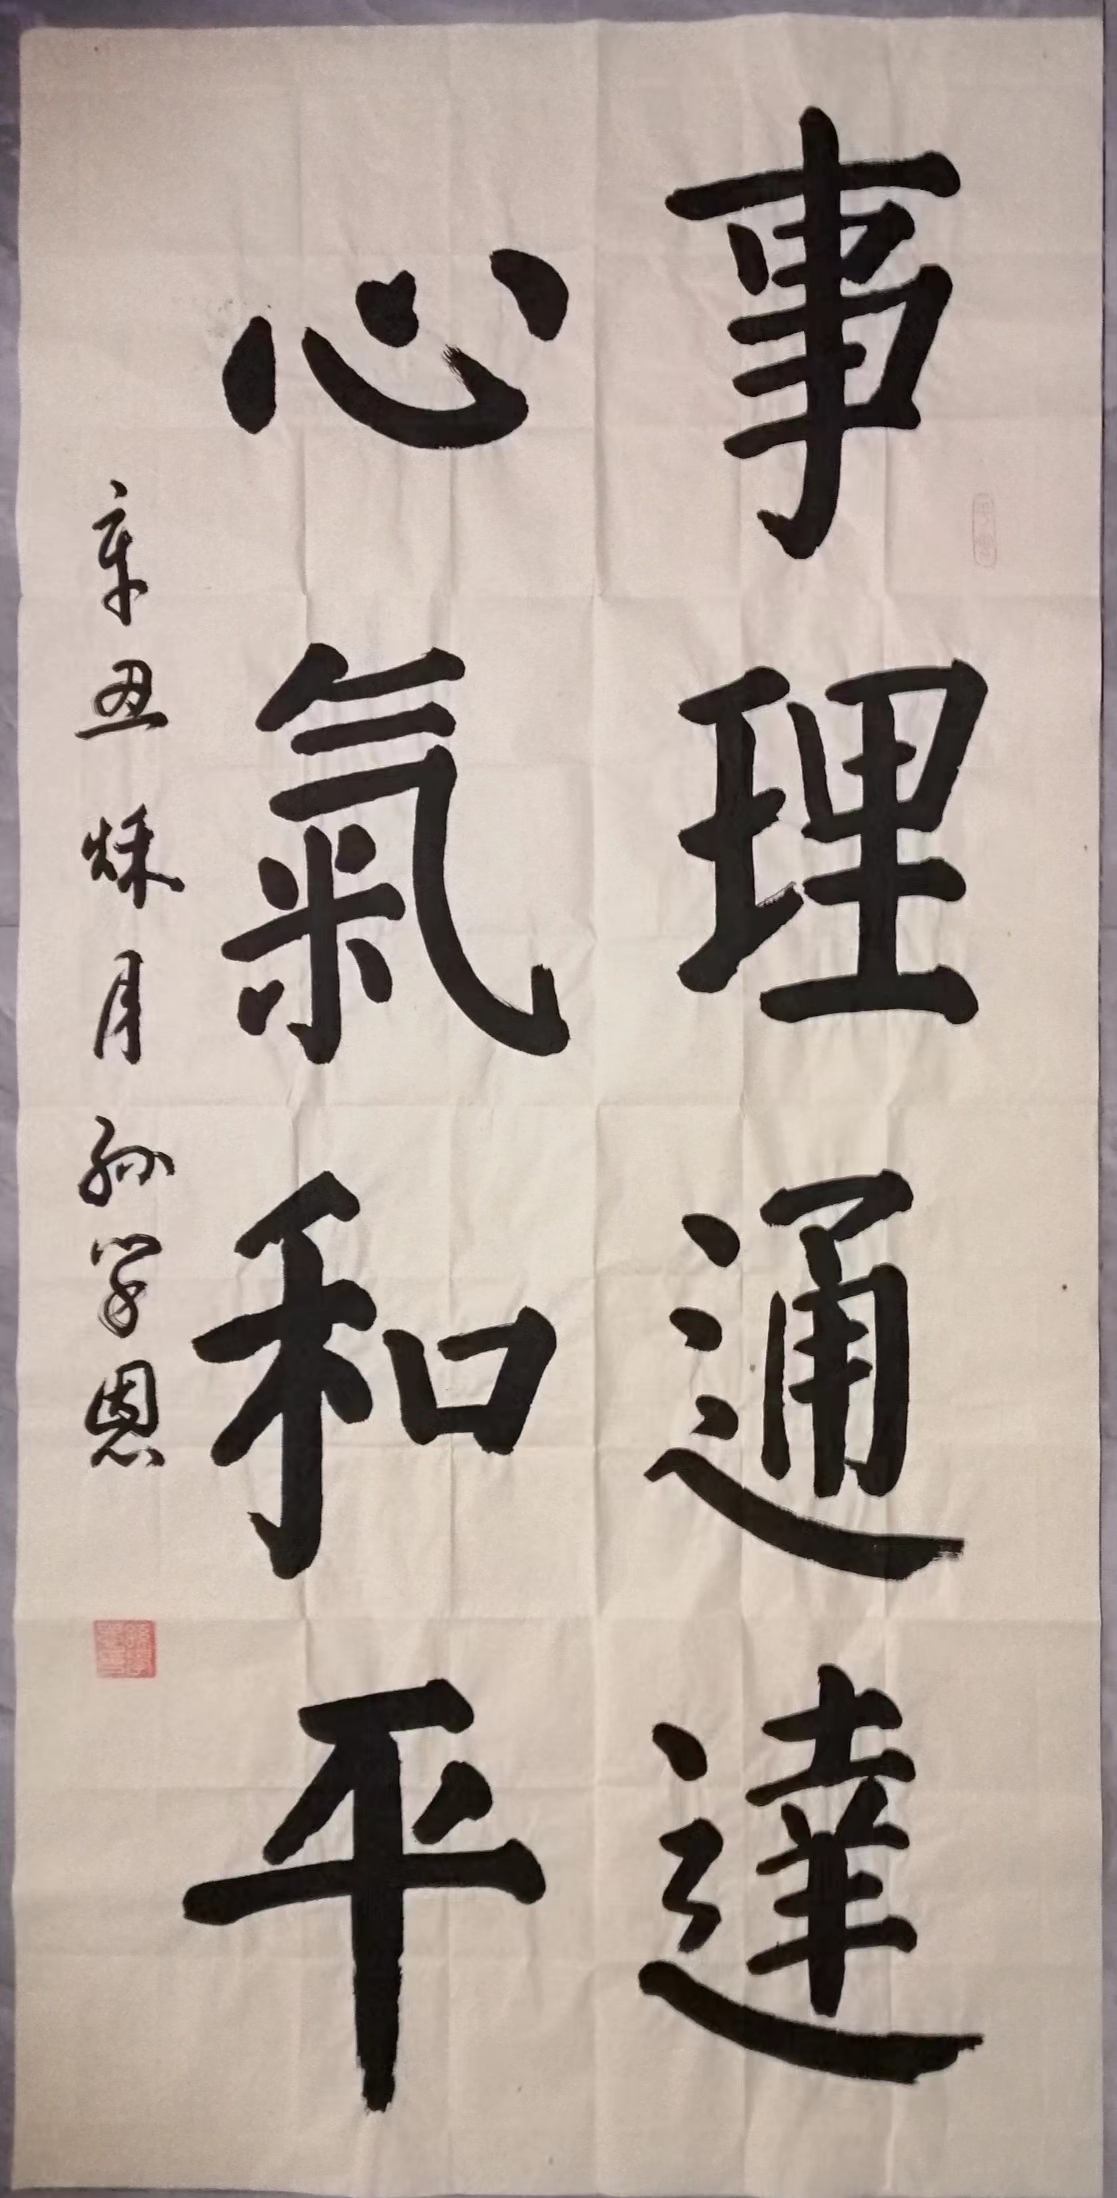 事理通達
心氣和平
辛丑秌月孙学恩